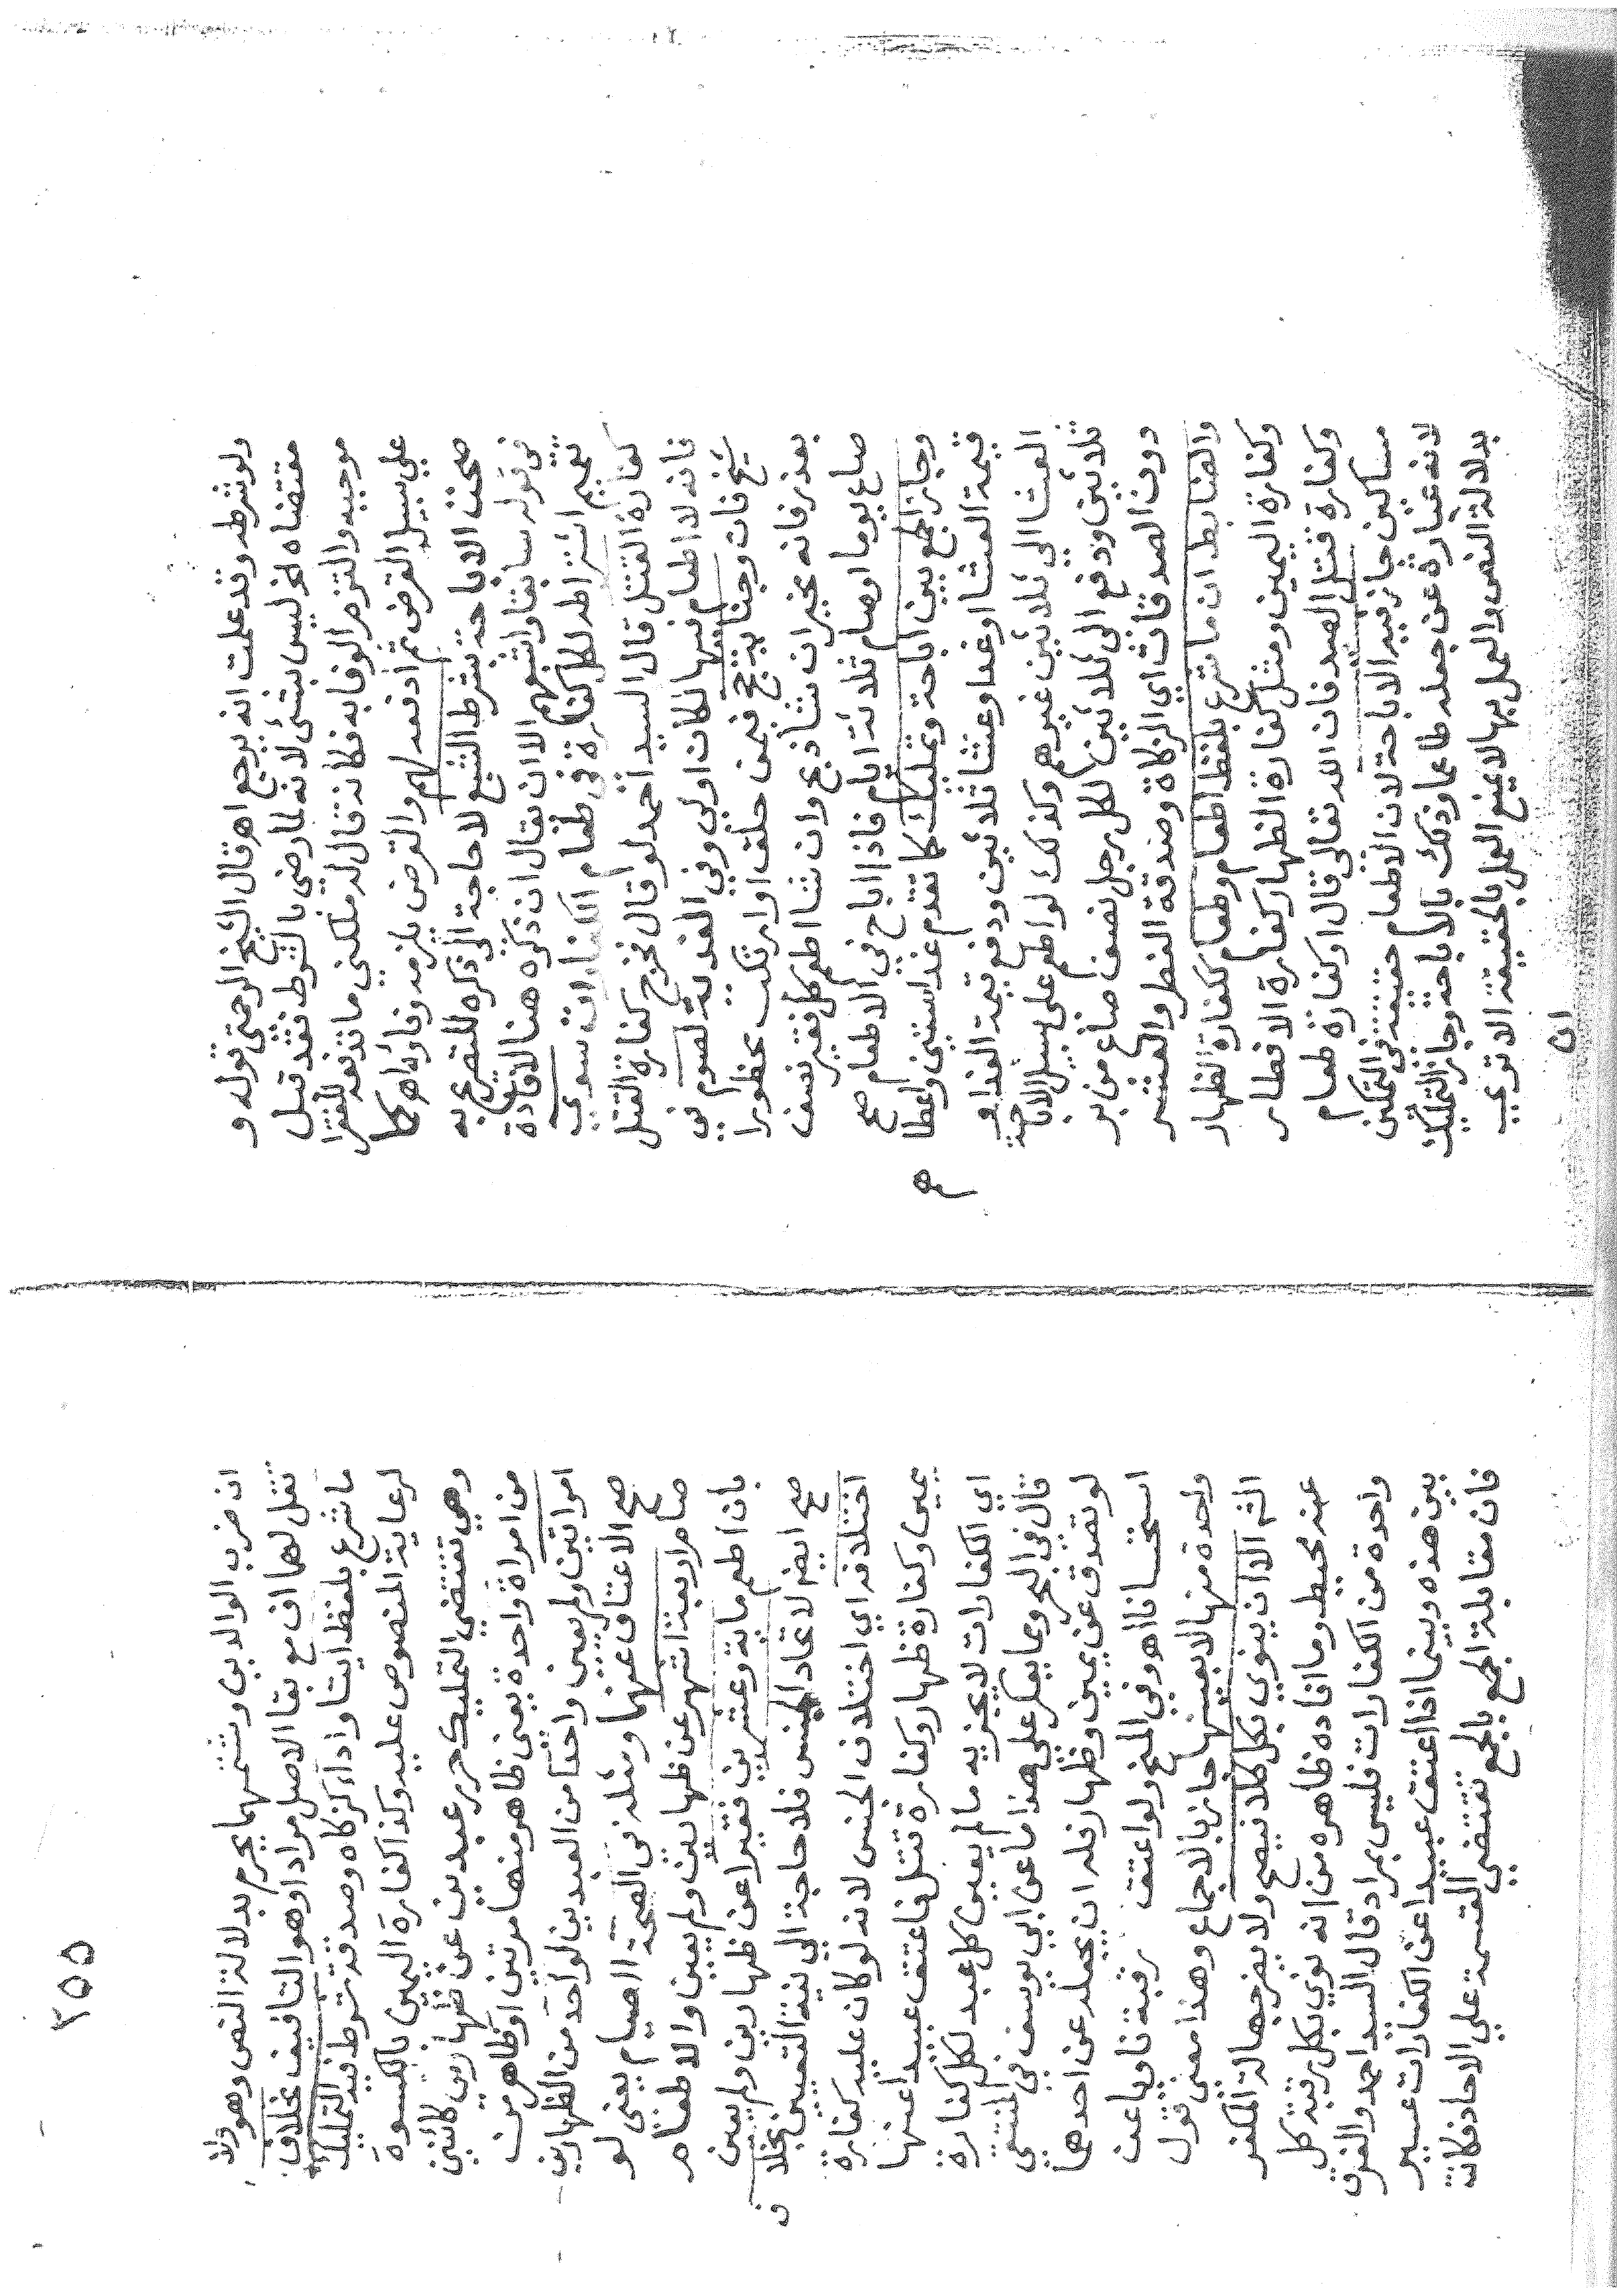 ولو شرط وقد علمت انه يرجع اهر قال الشيخ الرحمتي قوله و
مقتضاه الخ ليس بشئ لانه لما رضي بالشرط فقد قبل
موجبه والتزم الوفا به فكانه قال له ملكني ما تدفعه للفقرا
علي سبيل القرض ثم ادفعه لهم والقرض يلزمه وفاؤه اهر كما
صحت الاباحة بشرط الشبع لا حاجة الي ذكره للتصريح به
في قوله سابقا واشبعهم الا ان يقال ان ذكره هنا لافادة
تعميم اشتراطه للكفارة في طعام الكفارات سوي
كفارة القتل قال السيد احمد لو قال تخرج كفارة القتل
فانه لا اطعام فيها لكان اولي وفي الفدية لصوم في
شيخ فان وجناية حج فمن حلق او ارتكب محظورا
بعذر فانه مخير ان شا ذبح وان شا اطعم كل فقير نصف
صاع يوما او صام ثلاثة ايام فاذا اباح في الاطعام صح
وجاز الجمع بين اباحة وتمليك كما تقدم غدا ستين واعطا
قيمة العشا او غدا وعشا ثلاثين ودفع قيمة الغدا و
العشا الي ثلاثين غيرهم وكذلك لو اطعم علي سبيل الاباحة
ثلاثين ودفع الي ثلاثين لكل رجل نصف صاع من بر
دون الصدقات اي الزكاة وصدقة الفطر والعشر
والضابط ان ما شرع بلفظ اطعام وطعام ككفارة الظهار
وكفارة اليمين ومثل كفارة الظهار كفارة الافطار
وكفارة قتل الصيد فان الله تعالي قال او كفارة طعام
مساكين جاز فيه الاباحة لان الاطعام حقيقة في التمكين
لانه عبارة عن جعله طاعما وذلك بالاباحة وجاز التمليك
بدلالة النص والعمل بها لا يمنع العمل بالحقيقة الا تري
ان
٢٥٥
ان ضرب الوالدين وشتمهما يحرم بدلالة النص وهو ولا
تقل لهما اف مع بقا الاصل مرادا وهو التافيف بخلاف
ما شرع بلفظ ايتا واداء كزكاه وصدقة شرط فيه التمليك
لرعاية المنصوص عليه وكذا كفارة اليمين بالكسوة
وهي تقتضي التمليك حرر عبدين عن ظهارين كائنين
من امراة واحدة يعني ظاهر منها مرتين او ظاهر من
امراتين ولم يعين واحدا من العبدين لواحد من الظهارين
صح الاعتاق عنهما ومثله في الصحة الصيام يعني لو
صام اربعة اشهر عن ظهارين ولم يعين والاطعام
بان اطعم ماية وعشرين فقيرا عن ظهارين ولم يعين
صح ايضا لاتحاد الجنس فلا حاجة الي نية التعيين بخلاف
اختلافه اي اختلاف الجنس لانه لو كان عليه كفارة
يمين وكفارة ظهار وكفارة قتل فاعتق عبيدا عنها
اي الكفارات لا يجزيه ما لم يعين كل عبد لكل كفارة
قال في البحر ومما يعكر علي هذا ما عن ابي يوسف في المنتقي
لو تصدق عن يمين وظهار فله ان يجعله عن احدهما
استحسانا اهر وفي المنح ولو اعتق رقبة ناويا عن
واحدة منها لا بعينها جاز بالاجماع وهذا معني قول
الشر الا ان ينوي بكل كلا فيصح ولا يضر جهالة المكفر
عنه محيط وما افاده ظاهره من انه نوي بكل رقبة كل
واحدة من الكفارات فليس بمراد قال السيد احمد والفرق
بين هذه وبينما اذا اعتق عبيدا عن الكفارات عسير
فان مقابلة الجمع بالجمع تقتضي القسمة علي الاحاد فكانت